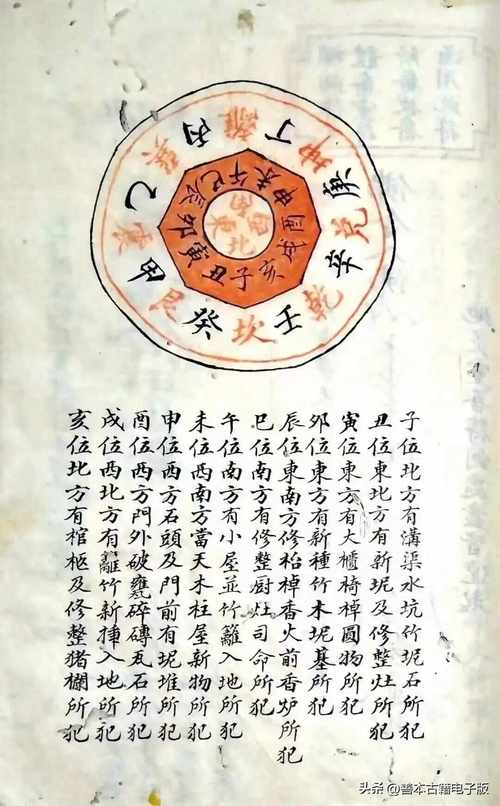 離丁坤庚兌辛乾壬坎癸艮甲震乙巽丙
午未申酉戌亥子丑寅卯辰巳
南西北東
子位北方有溝渠水坑竹坭石所犯
丑位東北方有新坭及修整灶所犯
寅位東方有大櫃椅棹圓物所犯
卯位東方有新種竹木坭墓所犯
辰位東南方修枱棹香火前香炉所犯
巳位南方有修整厨灶司命所犯
午位南方有小屋並竹籬入地所犯
未位西南方當天木柱屋新物所犯
申位西方石頭及門前有坭堆所犯
酉位西方門外破甕碎磚瓦石所犯
戌位西北方有籬竹新揷入地所犯
亥位北方有棺柩及修整猪欄所犯
头条 @善本古籍电子版